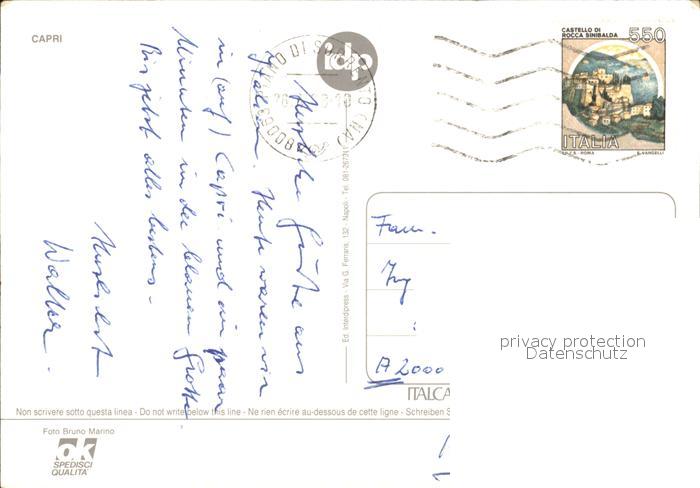 CAPRI
idp
CASTELLO DI
ROCCA SINIBALDA
550
ITALIA
I.P.Z.S. ROMA
E. VANGELLI
Herzliche Grüße aus
Italien. Heute waren wir
in (auf) Capri und ein paar
Minuten in der blauen Grotte
Bis jetzt alles bestens -
Herzlichst
Walter.
Ed. Interdipress - Via G. Ferraris, 132 - Napoli - Tel. 081-2672
Fam.
Ing
:
A 2000
privacy protection
Datenschutz
ITALCA
Non scrivere sotto questa linea - Do not write below this line - Ne rien écrire au-dessous de cette ligne - Schreiben S
Foto Bruno Marino
ok
SPEDISCI
QUALITÀ